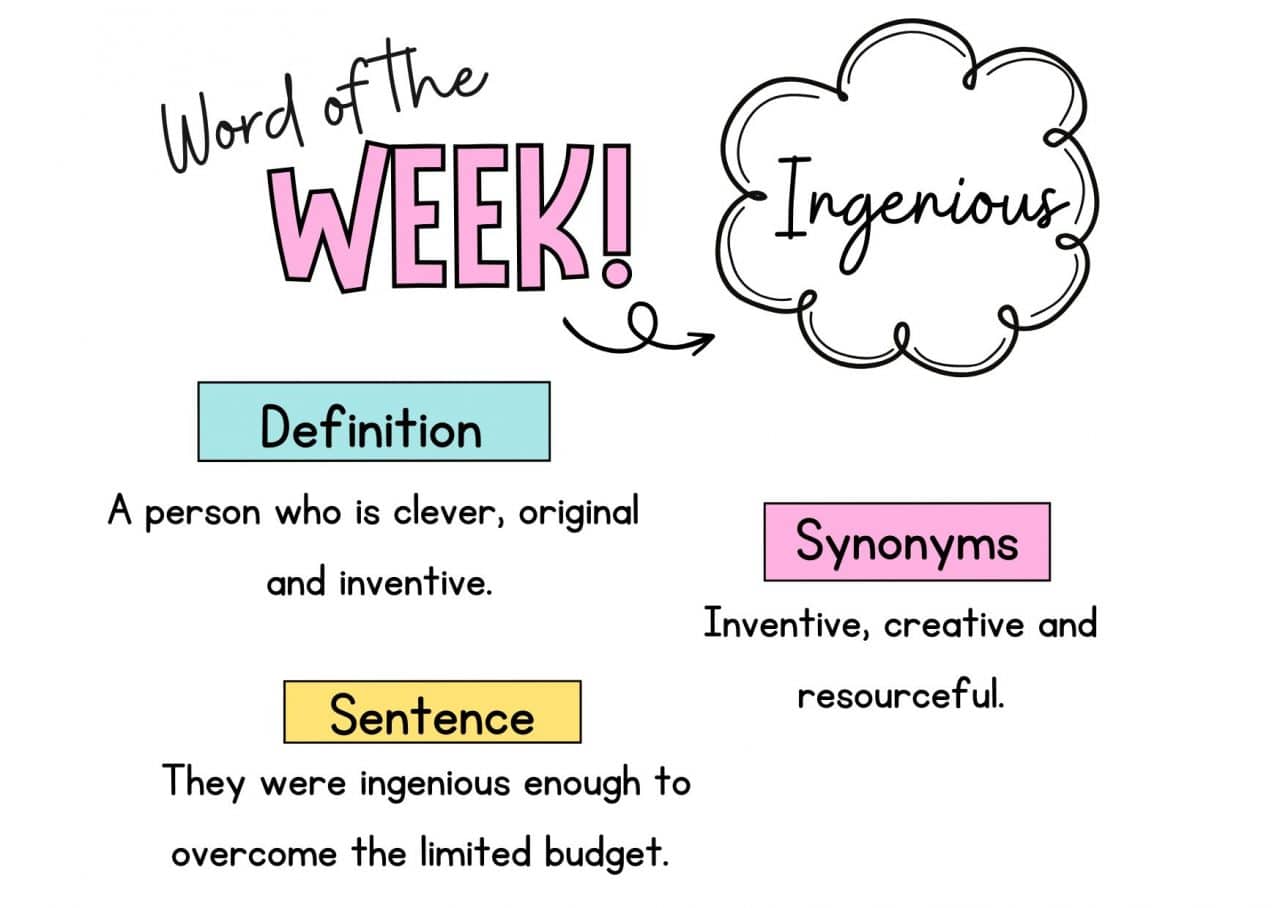 Word of the
WEEK!
Ingenious
Definition
A person who is clever, original
and inventive.
Synonyms
Inventive, creative and
resourceful.
Sentence
They were ingenious enough to
overcome the limited budget.